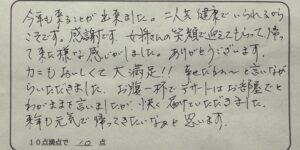 今年も来ることが出来ました。二人共健康でいられるから
こそです。感謝です。女将さんの笑顔で迎えてもらって、帰っ
て来た様な感じがしました。ありがとうございます。
カニもおいしくて大満足!! 幸せだね〜と言いながら
いただきました。お腹一杯でデザートはお部屋でと
わがまま言いましたが、快く届けていただきました。
来年も元気で帰ってきたいなぁと思います。
10点満点で 10 点